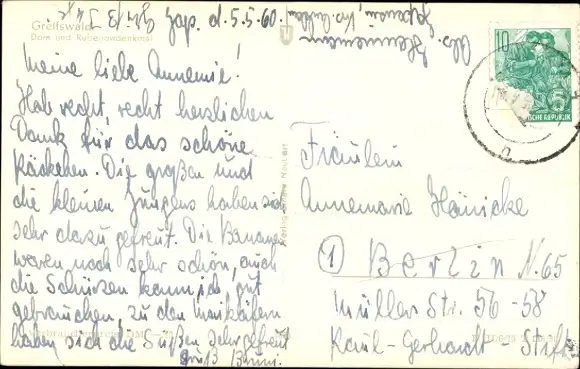 Greifswald
Dom und Rubenowdenkmal
Zap. d. 5.5.60.
Abs. Heinemann
Meine liebe Annemie!
Hab recht, recht herzlichen
Dank für das schöne
Päckchen. Die großen und
die kleinen Jungens haben sich
sehr dazu gefreut. Die Bananen
waren noch sehr schön, auch
die Schürzen kann ich gut
gebrauchen, zu den Maikäfern
haben sich die Süßen sehr gefreut
Gruß
10
DEUTSCHE REPUBLIK
Fräulein
Annemarie Hänicke
1 Berlin N. 65
Müller Str. 56-58
Paul-Gerhardt-Stift